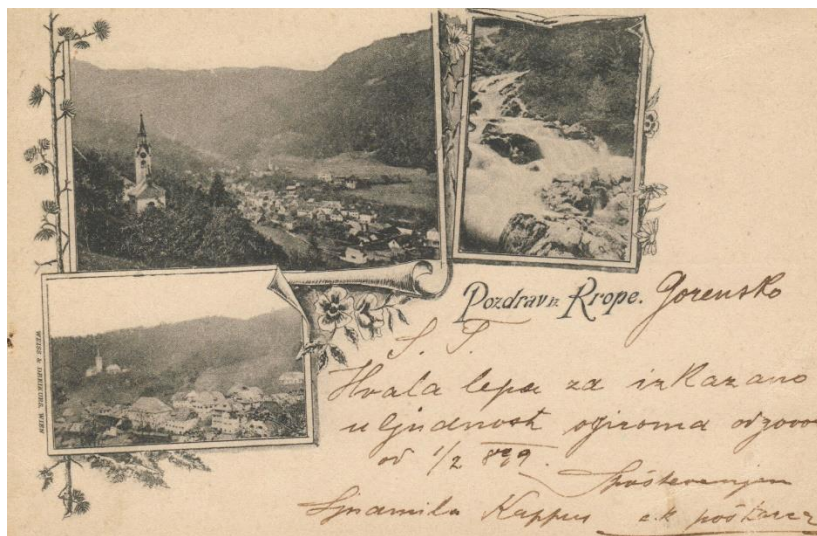 Pozdrav iz Krope. Gorensko
S. T.
Hvala lepa za izkazano
uljudnost oziroma odgovor
od 1/2 899.
Spoštovanjem
Ljudmila Kappus c. k. poštarica
WIEN